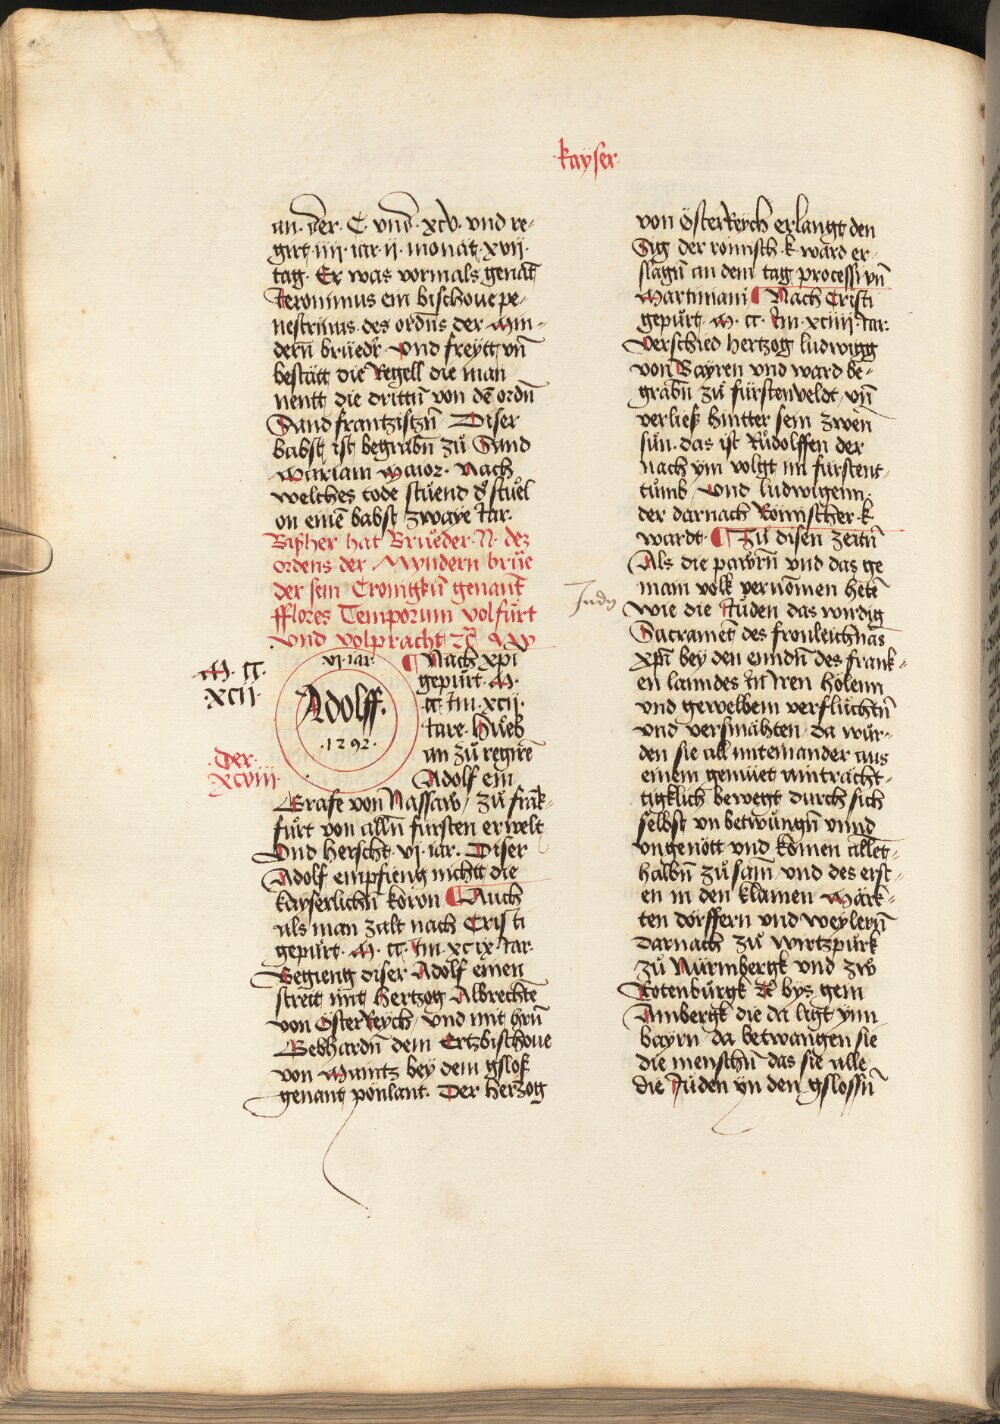 kayser
an der C vnd xcv. vnd re-
girt iiii iar ii monat xvii
tag. Er was vormals genāt
Ieronimus ein bischoue pe-
nestrinus des ordn̄s der Min-
dern̄ brüedr̄ Vnd freytt vn̄
bestätt die Regell die man
nentt die drittn̄ von dē ordn̄
Sand frantzistzn̄ Diser
babst ist begrabn̄ zů Sand
Mariam Maior. Nach
welches tode stůend d̓ stůel
on einē babst zwaye Iar.
Bißher hat Brůeder N. dez
ordens der Myndern brůe
der sein Cronigkn̄ genant
fflores Temporum volfůrt
vnd volpracht
M. CC.
XCII.
VI. iar.
Adolff.
.1292.
Der
XCVIII
Nach xpi
gepurt M.
CC Im xcii.
Iare. Hůeb
an zů regirē
Adolf ein
Grafe von Nassaw, zů frāk-
fůrt von alln̄ fürsten erwelt
Vnd herscht. vi. iar. Diser
Adolf empfieng nichtt die
kayserlichn̄ koron Auch
als man zalt nach Cristi
gepůrt. M. CC. Im xcix Iar.
Begieng diser Adolf einen
streit mit Hertzog Albrechtē
von ÖsterReych, vnd mit hrn̄
Gebhardn̄ dem Ertzbischoue
von Maintz bey dem gsloß
genant ponlant. Der Hertzog
von ÖsterReych erlangt den
Sig der romisch. k. ward er-
slagn̄ an dem tag processi vn̄
Martiniani Nach Cristi
gepůrt. M. CC. Im xciiii Iar.
Verschied Hertzog ludwigg
von Bayren vnd ward be-
grabn̄ zů fürstenveldt, vn̄
verließ hintter sein zwen
sün. das ist Růdolffen der
nach ym volgt im fürstent-
tůmb, Vnd ludwigenn.
der darnach Römischer. k.
wardt. Zů disen zeitn̄
Als die pawrn̄ vnd das ge
main volk vernōmen hetē
Iudei
wie die Iůden das wirdig
Sacramēt des fronleichnās
xpī bey den enndn̄ des frank-
en lanndes In Iren hölenn
vnd gewelbem verflůchtn̄
vnd versmähten, da wur-
den sie all miteinander aus
einem gemüet aintrācht-
igklich bewegt durch sich
selbst vn betwůngn̄ vnnd
vngenött vnd komen allēt-
halbn̄ zů sam̄ vnd des erst-
en in den klainen Märk-
ten dörffern vnd weylern̄
Darnach zů wirtzpůrk
zů Nürmbergk vnd zw̄
Rotenbůrgk &c bys gein
Ambergk die da ligt ynn
bayrn da betwangen sie
die menschn̄ das sie alle
die Iüden yn den gslossn̄